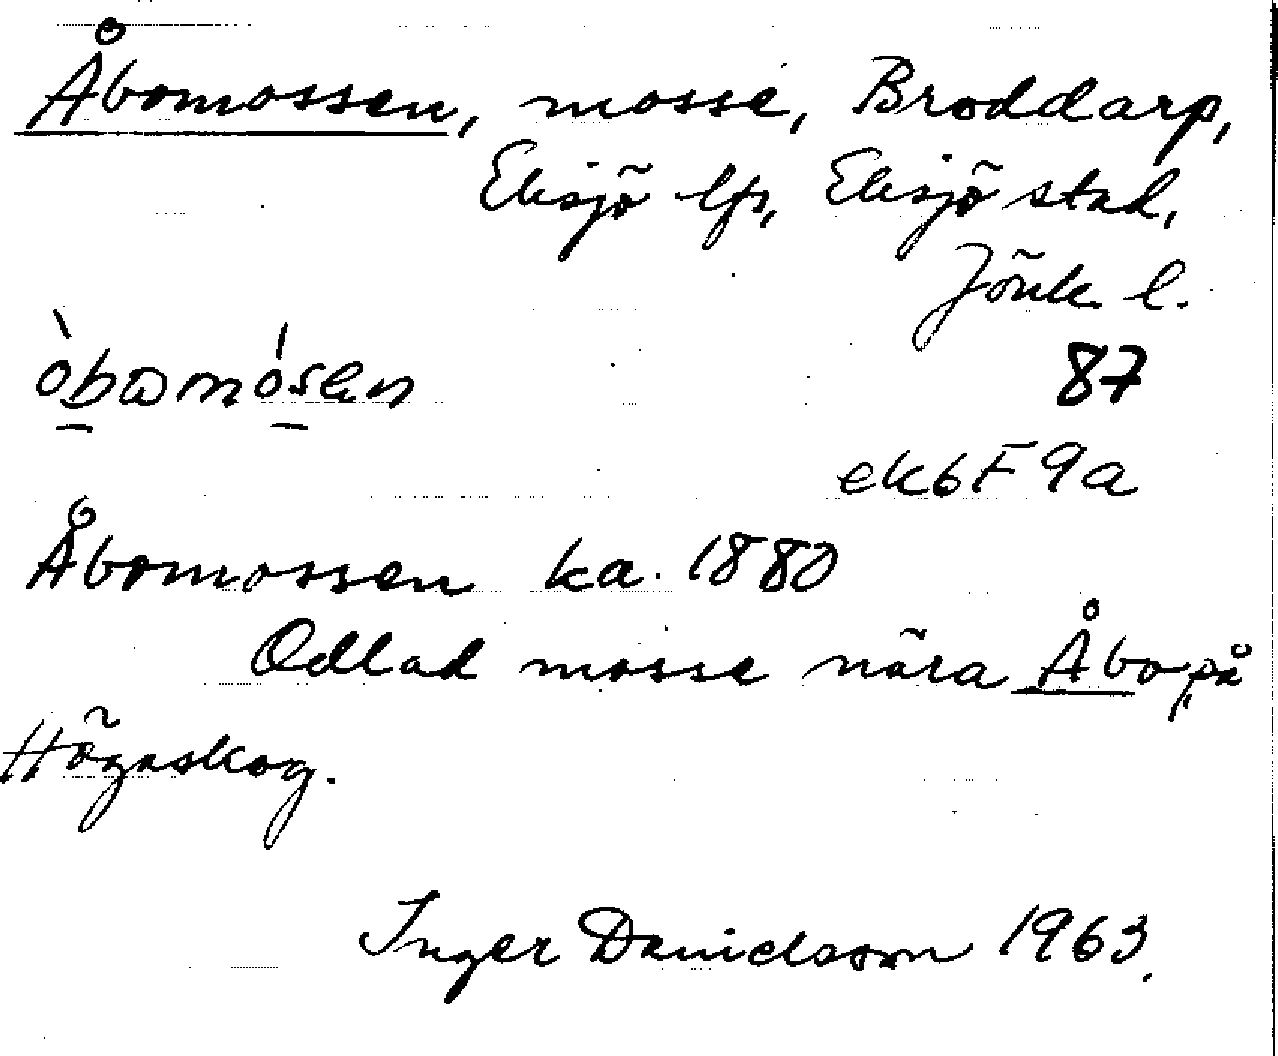 Åbomossen, mosse, Broddarp,
Eksjö lfs, Eksjö stad,
Jönk. l.
87
ek6F9a
Åbomossen ka. 1880
Odlad mosse nära Åbo på
Högaskog.
Inger Danielsson 1963.